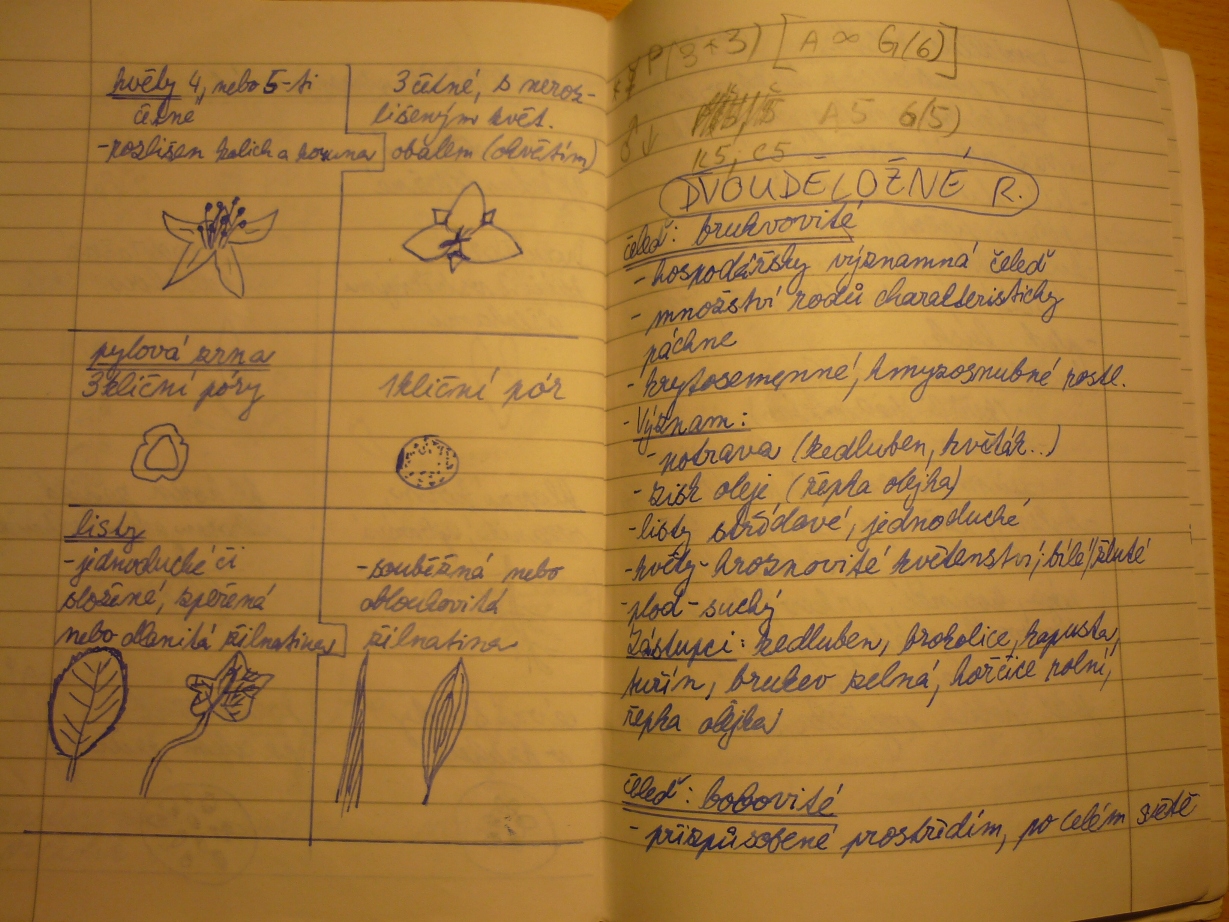 květy 4, nebo 5-ti
četné
-rozlišen kalich a koruna
3 četné, s neroz-
lišeným květ.
obalem (okvětím)
pylová zrna
3 klíční póry
1 klíční pór
listy
-jednoduché či
složené, zpeřená
nebo dlanitá žilnatina
-souběžná nebo
obloukovitá
žilnatina
P(3+3) [A∞ G(6)]
A5 G(5)
K5, C5
DVOUDĚLOŽNÉ R.
čeleď: brukvovité
-hospodářsky významná čeleď
- množství rodů charakteristicky
páchne
-krytosemenné, hmyzosnubné rostl.
-Význam:
-potrava (kedluben, květák..)
-zisk oleje (řepka olejka)
-listy střídavé, jednoduché
-květy-hroznovité květenství; bílé/žluté
-plod-suchý
Zástupci: kedluben, brokolice, kapusta,
tuřín, brukev zelná, hořčice rolní,
řepka olejka
čeleď: bobovité
-přizpůsobené prostředím, po celém světě